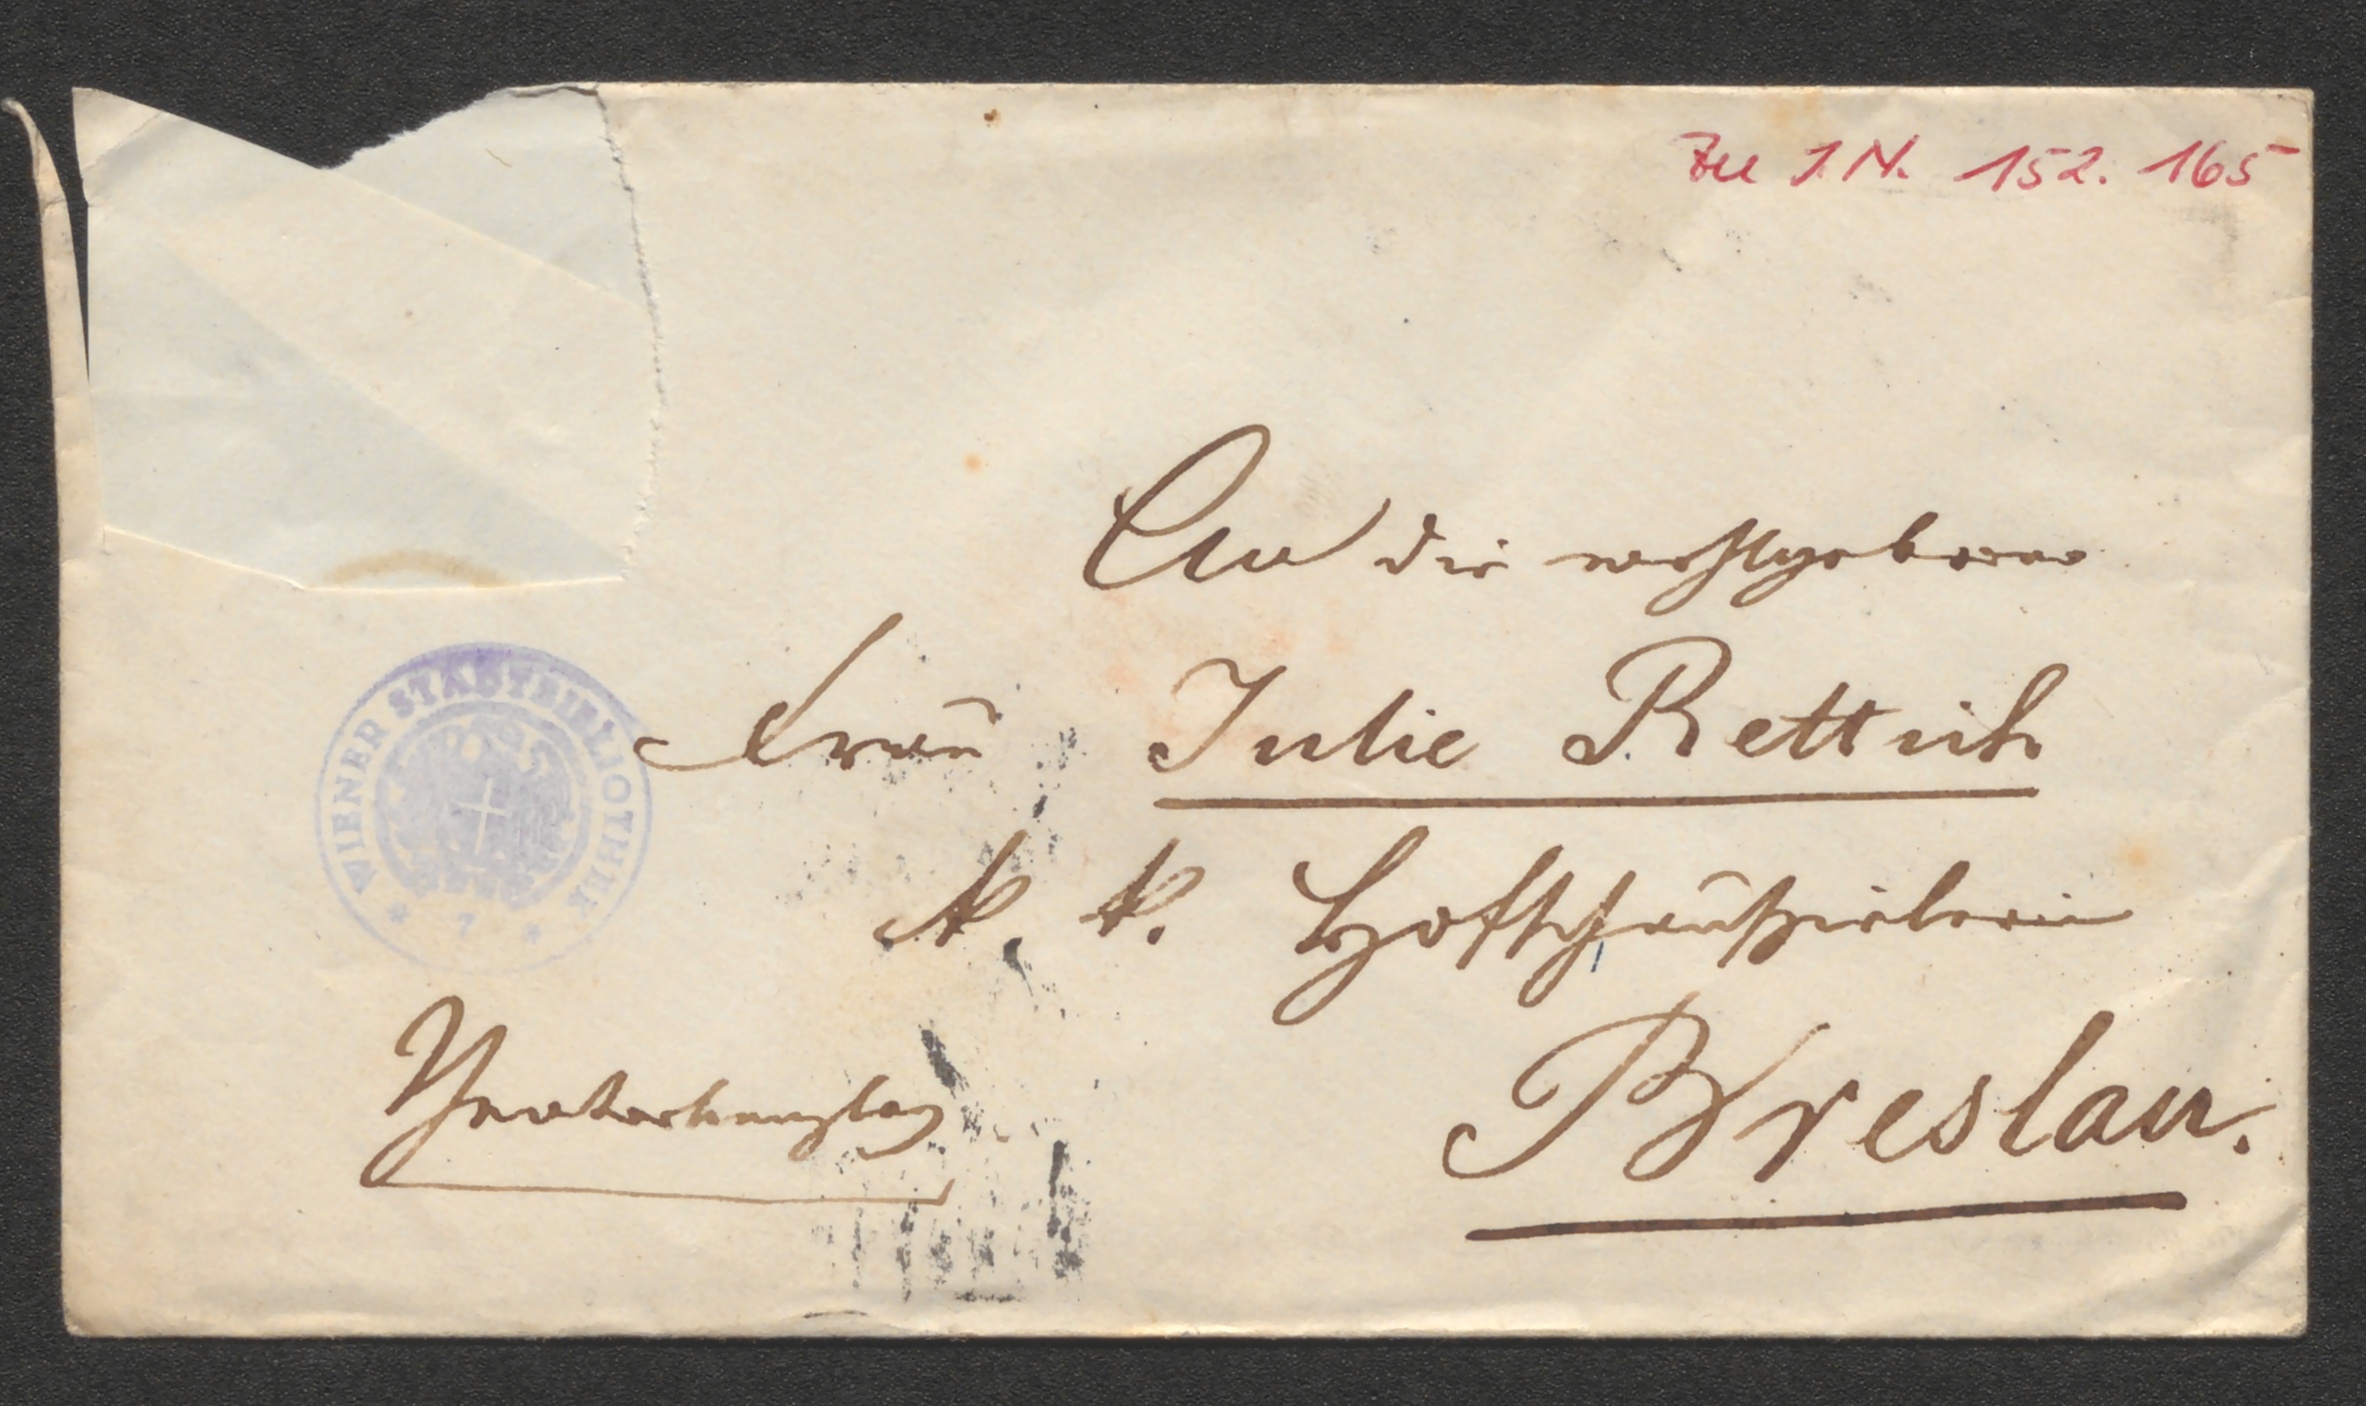 Zu I.N. 152.165
An die wohlgeborne
Frau Julie Rettich
k. k. Hofschauspielerin
Theaterkanzley
Breslau.
WIENER STADTBIBLIOTHEK
* 7 *